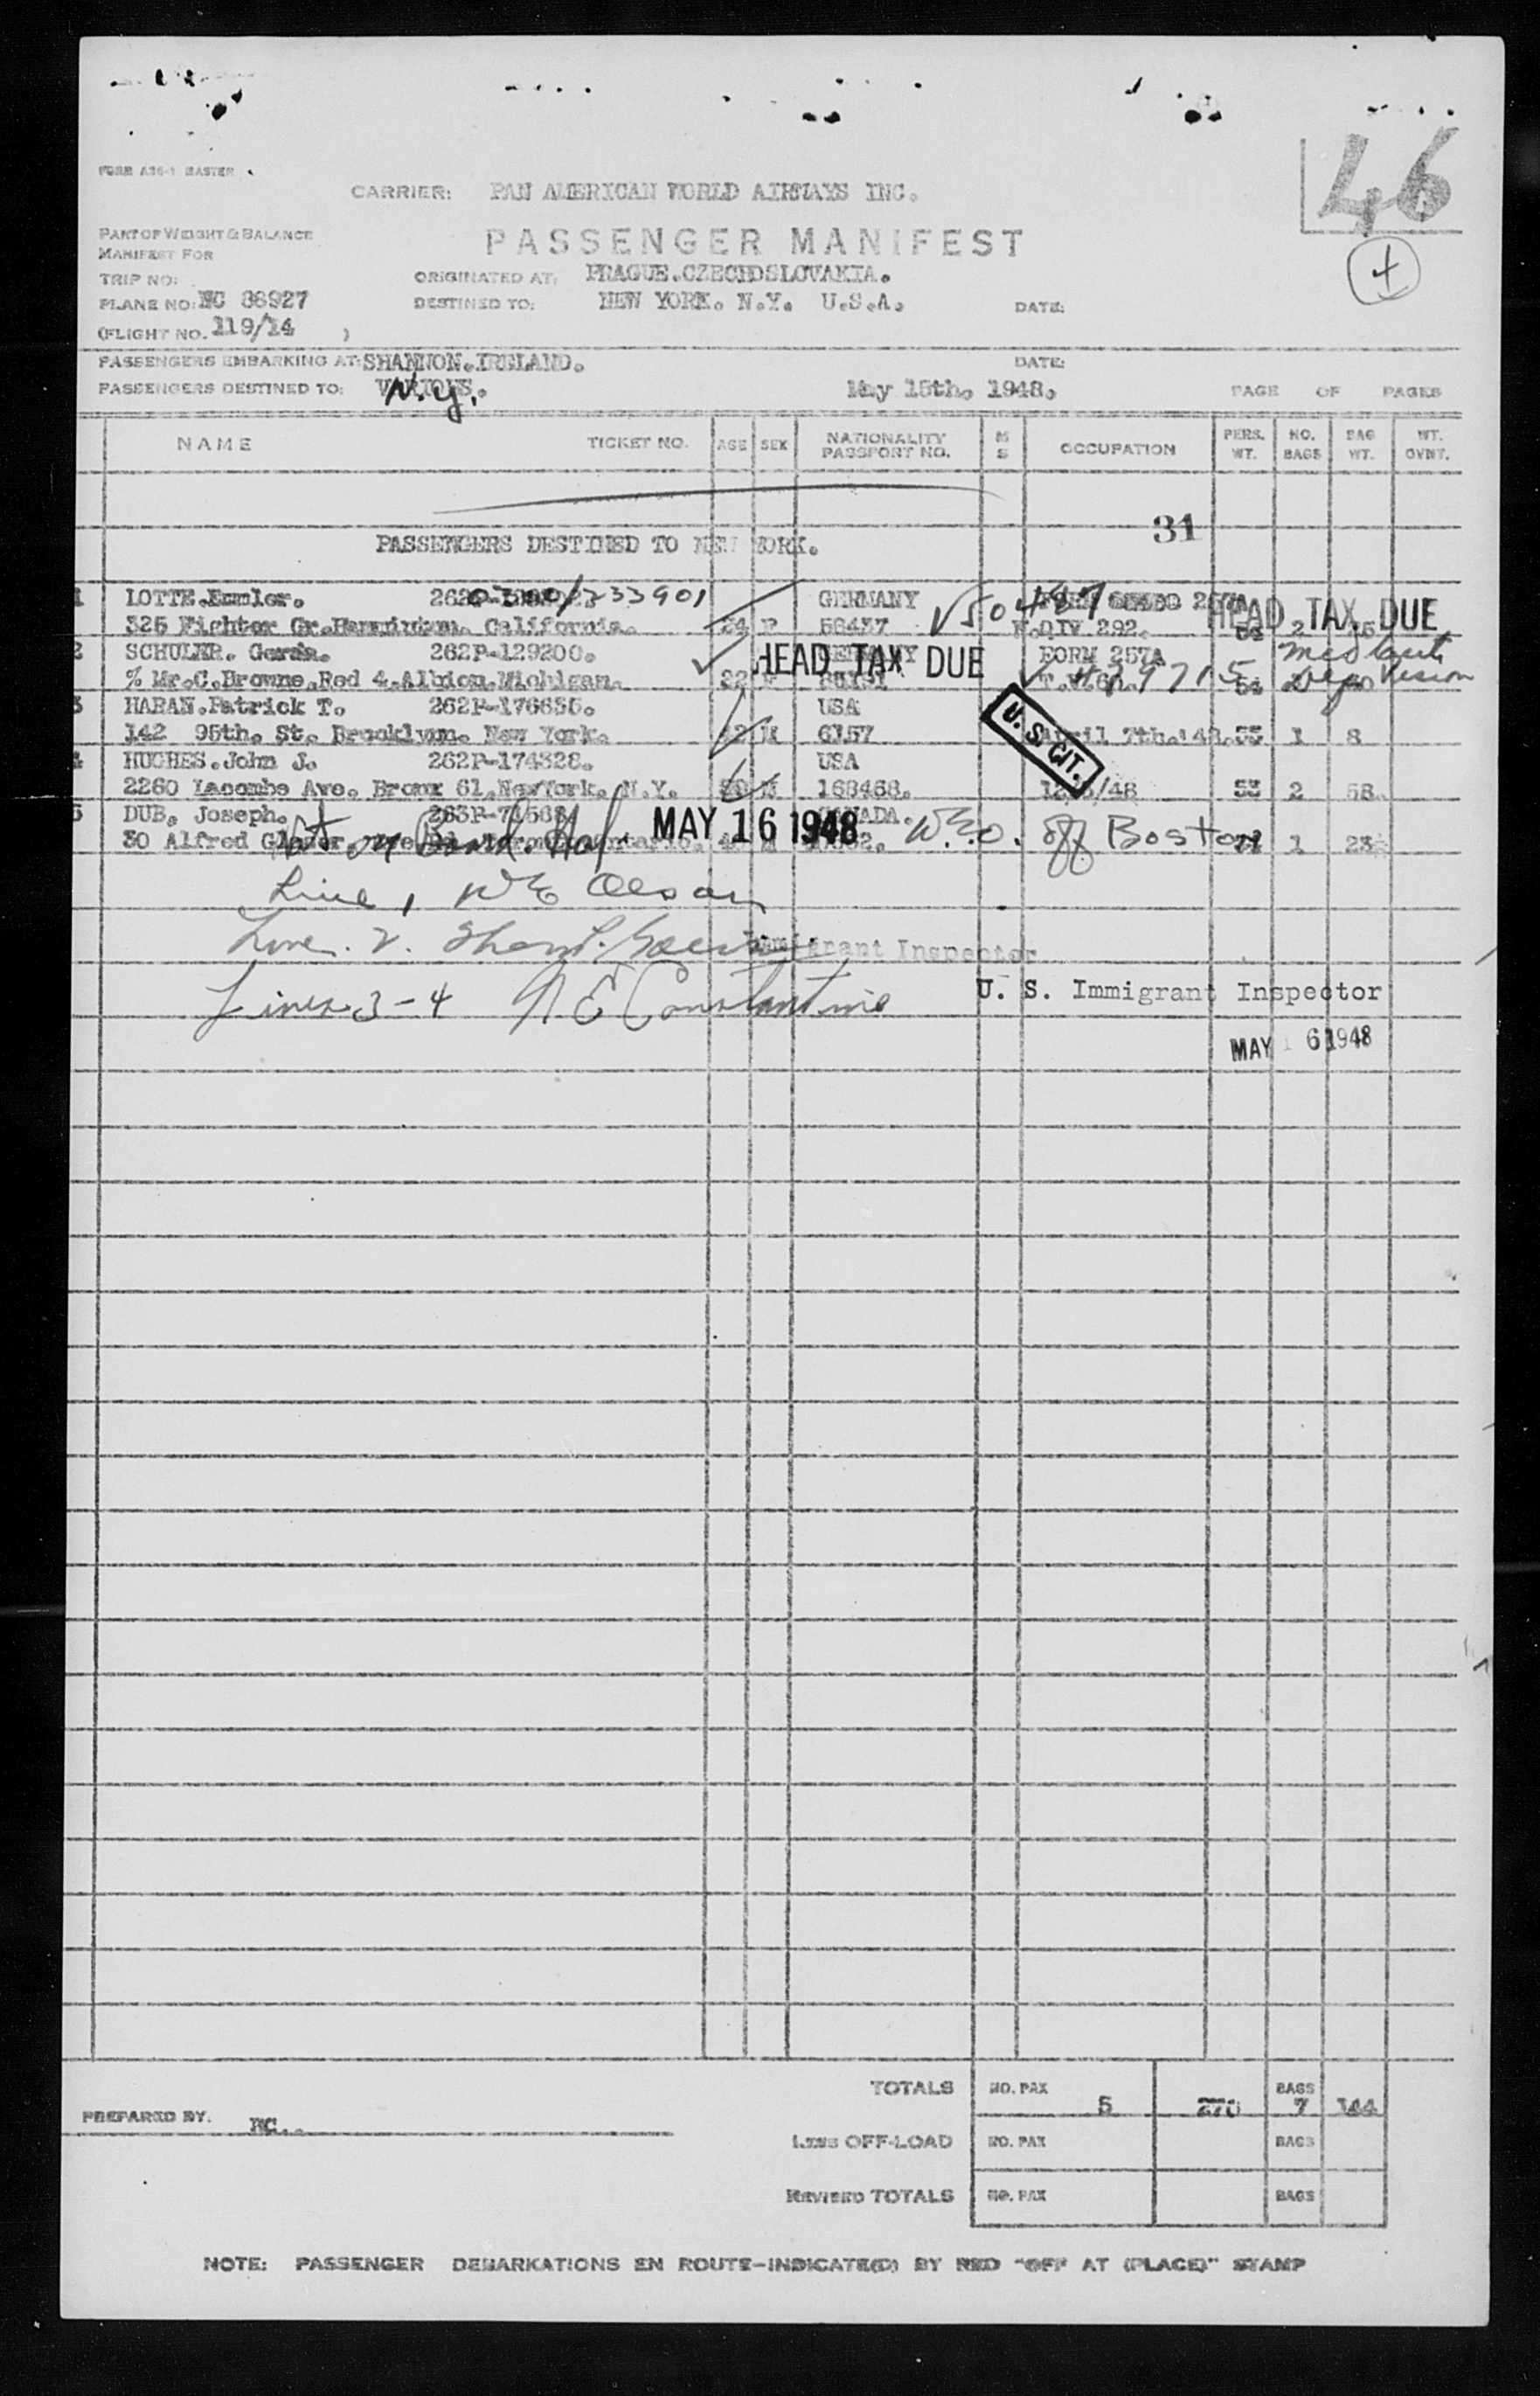 46
FORM A36-1 MASTER
CARRIER: PAN AMERICAN WORLD AIRWAYS INC.
PART OF WEIGHT & BALANCE
MANIFEST FOR
PASSENGER MANIFEST
+
TRIP NO:
ORIGINATED AT: PRAGUE.CZECHOSLOVAKIA.
PLANE NO: NC 88927
DESTINED TO: NEW YORK. N.Y. U.S.A.
DATE:
(FLIGHT NO. 119/14 )
PASSENGERS EMBARKING AT: SHANNON.IRELAND.
DATE:
PASSENGERS DESTINED TO: VARIOUS. N.Y.
May 15th. 1948.
PAGE OF PAGES
NAME TICKET NO. AGE SEX NATIONALITY PASSPORT NO. M S OCCUPATION PERS. WT. NO. BAGS BAG WT. WT. OVNT.
31
PASSENGERS DESTINED TO NEW YORK.
1 LOTTE. 0300/233901 GERMANY V50487
325 Fichter Gr. California. 24 F 58437 DIV 292. 2 HEAD TAX DUE
2 SCHULER. Gerda. 262P-129200. HEAD TAX DUE FORM 257A
% Mr.C.Browne.Red 4.Albion.Michigan. 22
3 HARAN.Patrick T. 262P-176635. USA U.S. CIT.
142 95th. St. Brooklyn. New York. M 6157 April 7th.'48. 53 1 8
4 HUGHES.John J. 262P-174328. USA
2260 Lacombe Ave. Bronx 61.NewYork. N.Y. M 168468. /48 53 2 58.
5 DUB. Joseph. 263P-71568 CANADA.
30 Alfred Not on Board. MAY 16 1948 W.E.O. Off Boston 1 23
Line 1 W E Olson
Line. 2.
Immigrant Inspector
Lines 3-4 N E Constantine
U. S. Immigrant Inspector
MAY 16 1948
TOTALS NO. PAX 5 270 BAGS 7 144
PREPARED BY.
LESS OFF-LOAD NO. PAX BAGS
REVISED TOTALS NO. PAX BAGS
NOTE: PASSENGER DEBARKATIONS EN ROUTE-INDICATE(D) BY RED "OFF AT (PLACE)" STAMP